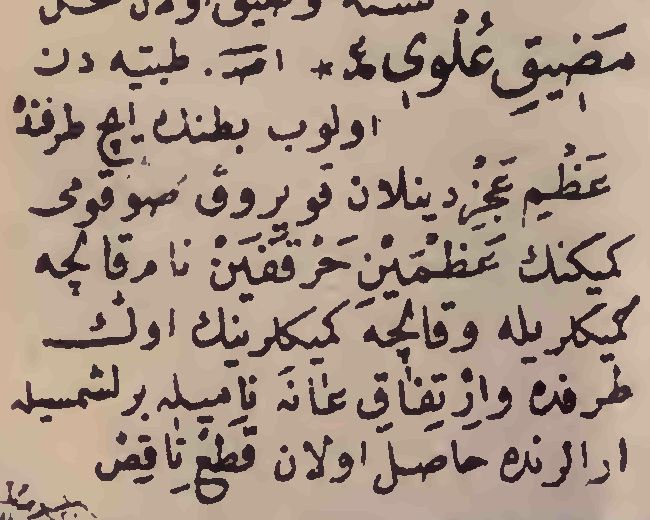 مَضِيقِ عُلْوِى ع * اصـ. طبيه دن
اولوب بطنك ايچ طرفنده
عَظْمِ عَجُزْ دينلان قويروق صوقومى
كميكنك عَظْمَيْنِ حَرْقَفَيَنْ نام قالچه
كميكلريله وقالچه كميكلرينك اوڭ
طرفده وارْتِفَاقِ عَانَه ناميله برلشمسيله
ارالرنده حاصل اولان قَطْعْ نَاقِصْ